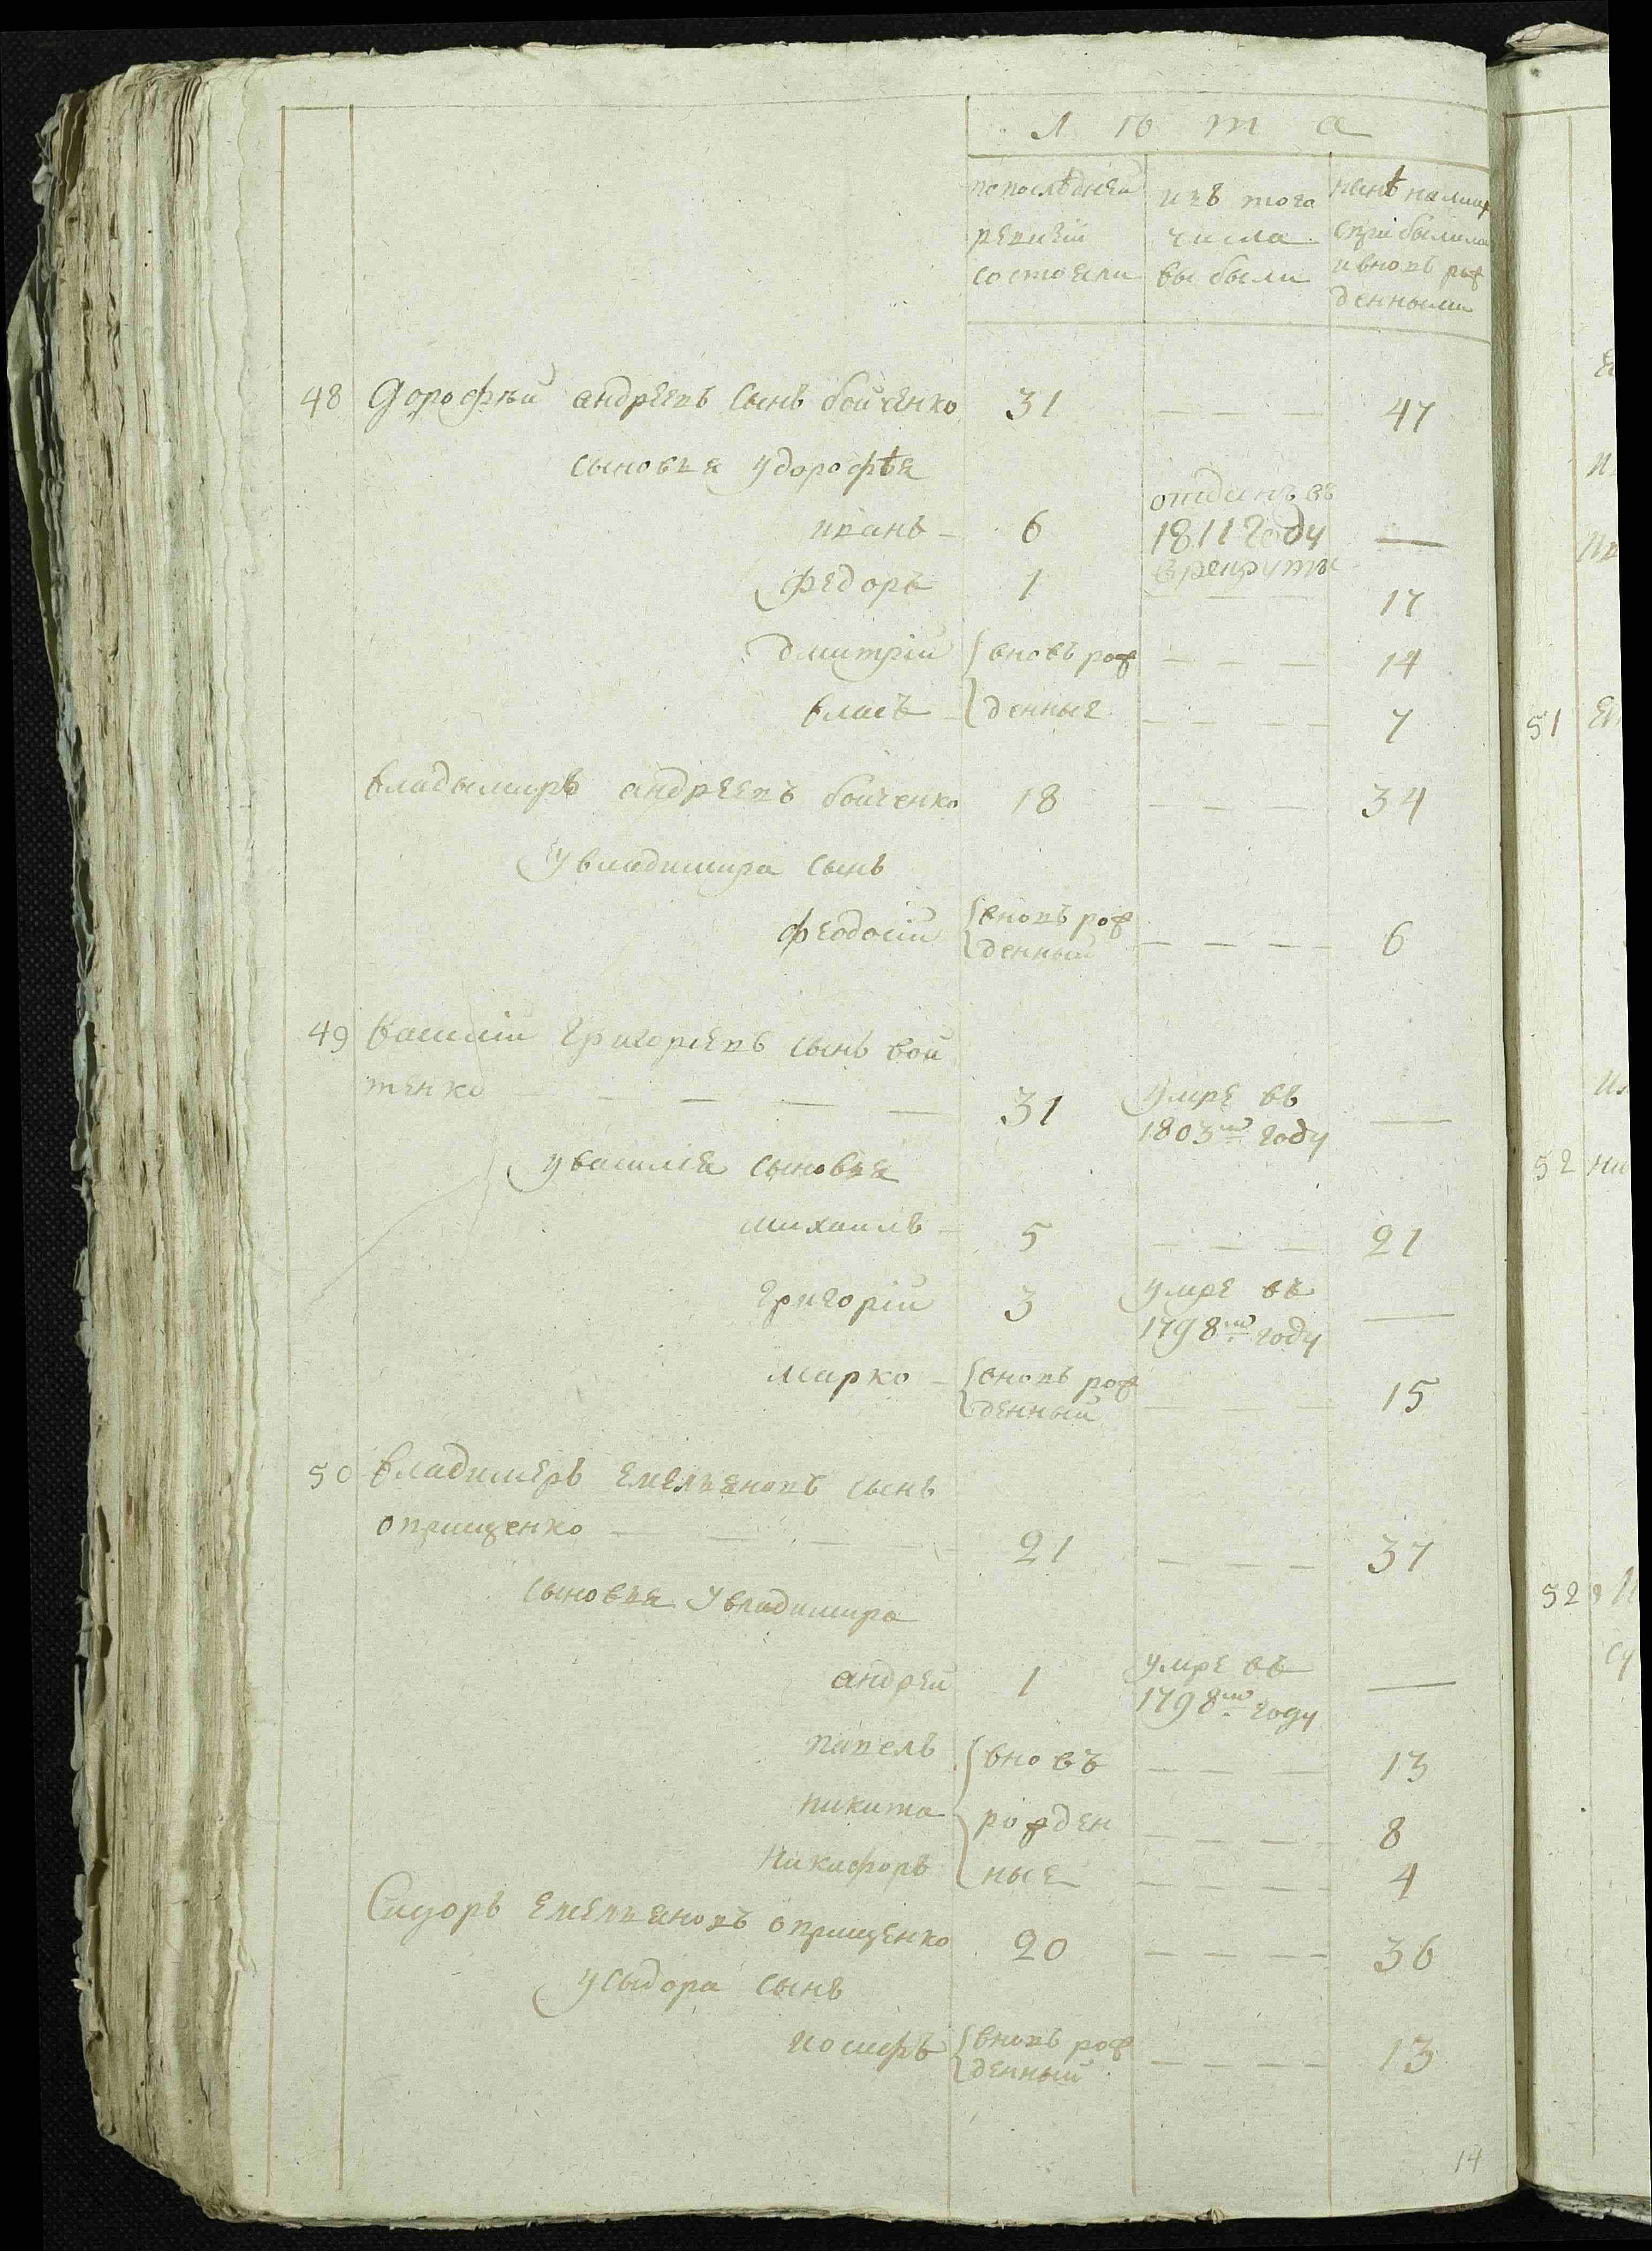 Лѣта
по послѣдней ревизіи состояли
изъ того числа выбыли
нынѣ на лицо съ прибылыми и вновь рожденными
48 Дорофѣй андреевъ сынъ бойченко 31 — — — 47
сыновья у дорофѣя
иванъ — 6 отданъ въ 1811 году в рекруты —
федоръ 1 — — — 17
дмитрій вновь рож — — — 14
власъ — денные — — — — 7
владымиръ андреевъ бойченко 18 — — — 34
у владимира сынъ
феодосій вновь рожденный — — — — 6
49 василій григорьевъ сынъ вой
тенко — — — — — 31 умре въ 1803м году —
у василія сыновья
михаилъ — 5 — — — 21
григорій 3 умре въ 1798м году —
марко — вновь рожденный — — — 15
50 владимеръ емельяновъ сынъ
оприщенко — — — — — 21 — — — 37
сыновья у владимира
андрей 1 умре въ 1798м году —
павелъ вновъ — — — — 13
никита рожден — — — — 8
никифоръ ные — — — — 4
Сидоръ емельяновъ оприщенко 20 — — — — 36
у сыдора сынъ
иосифъ вновь рожденный — — — — 13
14
51
52
52